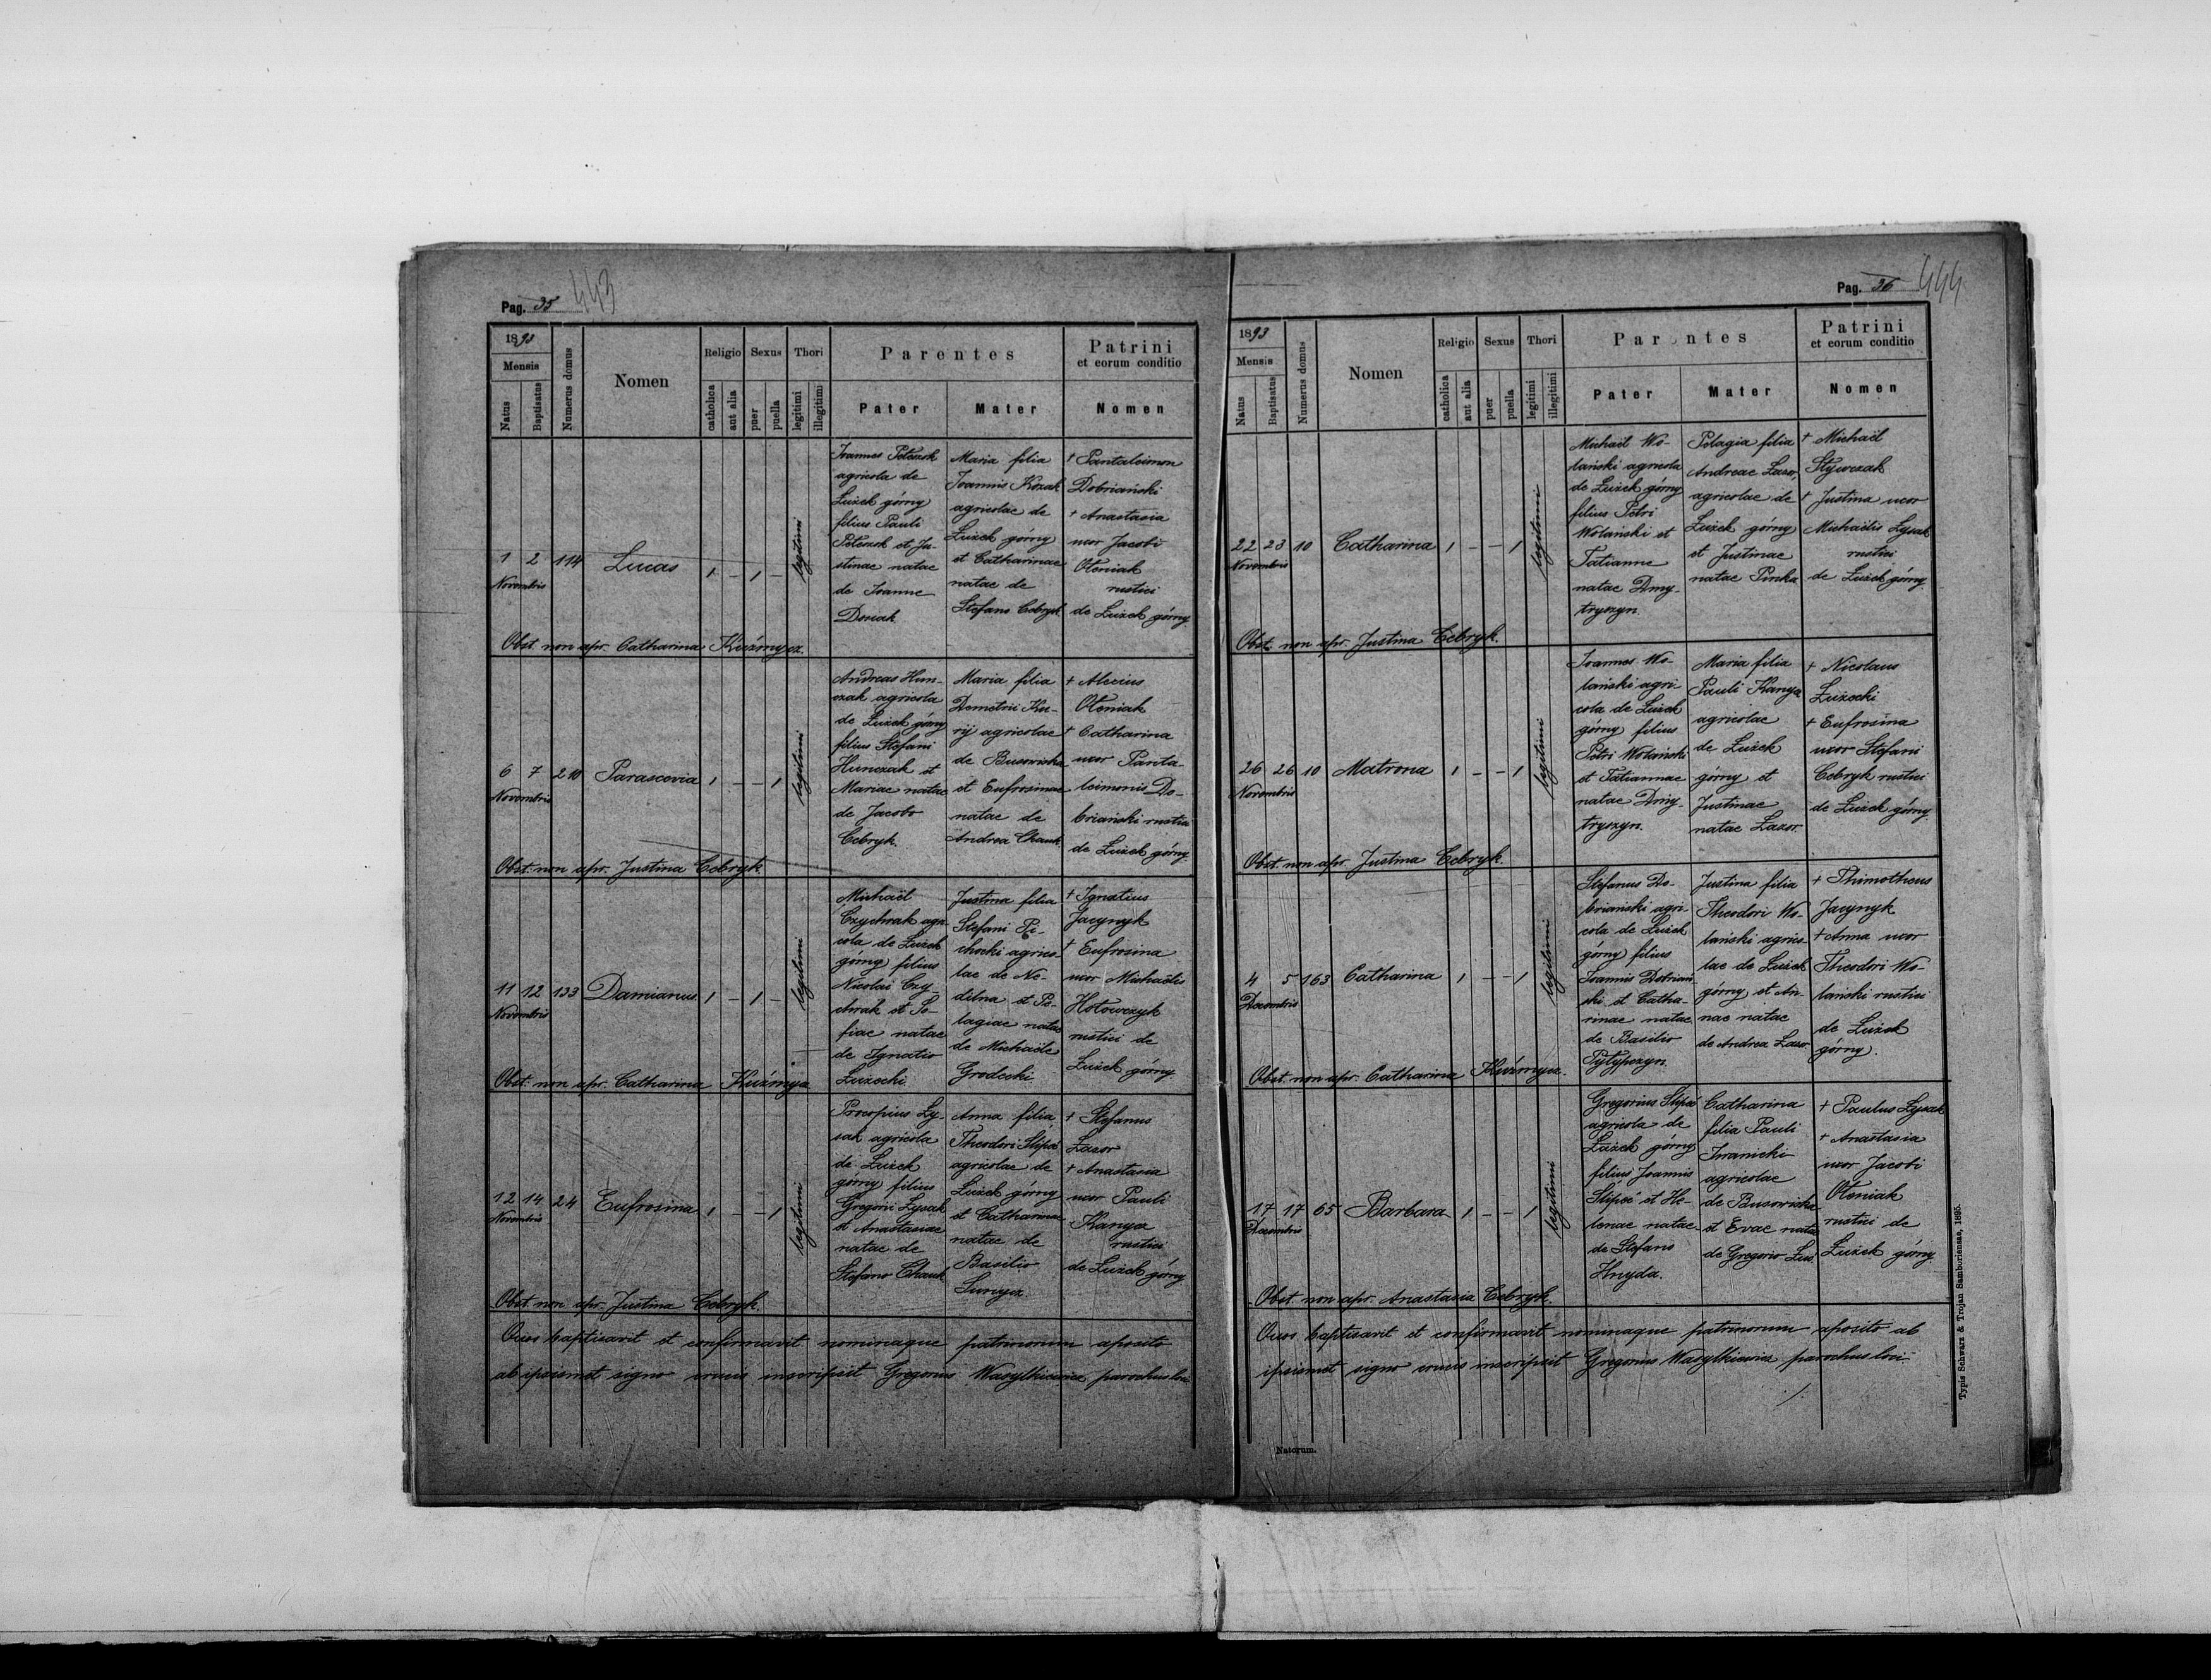 Pag. 35 443
1893
Mensis
Natus
Baptisatus
Numerus domus
Nomen
Religio
catholica
aut alia
Sexus
puer
puella
Thori
legitimi
illegitimi
Parentes
Pater
Mater
Patrini
et eorum conditio
Nomen
1 2 114 Lucas 1 - 1 - legitimi
Novembris
Joannes
agricola de
Łużek górny
filius Pauli
et Ju-
stinae natae
de Joanne
Maria filia
Joannis Kozak
agricolae de
Łużek górny
et Catharinae
natae de
Stefano Cebryk
+ Pantaleimon
Dobriański
+ Anastasia
uxor Jacobi
Oleniak
rustici
de Łużek górny
Obst. non apr. Catharina Kuźmycz.
6 7 210 Parascevia 1 - - 1 legitimi
Novembris
Andreas Hun-
czak agricola
de Łużek górny
filius Stefani
Hunczak et
Mariae natae
de Jacobo
Cebryk.
Maria filia
Demetrii Ku-
rij agricolae
de Busowiska
et Eufrosinae
natae de
Andrea Chauk
+ Alexius
Oleniak
+ Catharina
uxor Panta-
leimonis Do-
briański rustici
de Łużek górny
Obst. non apr. Justina Cebryk.
11 12 133 Damianus 1 - 1 - legitimi
Novembris
Michaël
Czychrak agri-
cola de Łużek
górny filius
Nicolai Czy-
chrak et So-
fiae natae
de Ignatio
Łużecki
Justina filia
Stefani
agrico-
lae de Ne-
dilna et Pe-
lagiae natae
de Michaële
Grodecki
+ Ignatius
Jacynyk
+ Eufrosina
uxor Michaëlis
Hołowczyk
rustici de
Łużek górny
Obst. non apr. Catharina Kuźmycz
12 14 24 Eufrosina 1 - - 1 legitimi
Novembris
Procopius Ły-
sak agricola
de Łużek
górny filius
Gregorii Łysak
et Anastasiae
natae de
Stefano Chauk
Anna filia
Theodori Slipeć
agricolae de
Łużek górny
et Catharinae
natae de
Basilio
+ Stefanus
Łazor
+ Anastasia
uxor Pauli
Kanycz
rustici
de Łużek górny
Obst. non apr. Justina Cebryk.
Quos baptisavit et confirmavit nominaque patrinorum aposito
ab ipsismet signo crucis inscripsit Gregorius Wasylkiewicz parochus loci
Pag. 36 444
1893
Mensis
Natus
Baptisatus
Numerus domus
Nomen
Religio
catholica
aut alia
Sexus
puer
puella
Thori
legitimi
illegitimi
Parentes
Pater
Mater
Patrini
et eorum conditio
Nomen
22 23 10 Catharina 1 - - 1 legitimi
Novembris
Michaël Wo-
lański agricola
de Łużek górny
filius Petri
Wolański et
Tatianne
natae Dmy-
tryszyn.
Pelagia filia
Andreae Łazor,
agricolae de
Łużek górny
et Justinae
natae Pinka
+ Michaël
Stywczak
+ Justina uxor
Michaëlis Łysak
rustici
de Łużek górny
Obst. non apr. Justina Cebryk.
26 26 10 Matrona 1 - - 1 legitimi
Novembris
Joannes Wo-
lański agri-
cola de Łużek
górny filius
Petri Wolański
et Tatiannae
natae Dmy-
tryszyn.
Maria filia
Pauli Kanycz
agricolae
de Łużek
górny et
Justinae
natae Łazor.
+ Nicolaus
Łużecki
+ Eufrosina
uxor Stefani
Cebryk rustici
de Łużek górny
Obst. non apr. Justina Cebryk.
4 5 163 Catharina 1 - - 1 legitimi
Decembris
Stefanus Do-
briański agri-
cola de Łużek
górny filius
Joannis Dobriań-
ski et Catha-
rinae natae
de Basilio
Pytypczyn.
Justina filia
Theodori Wo-
lański agrico-
lae de Łużek
górny et An-
nae natae
de Andrea Łazor
+ Thimotheus
Jacynyk
+ Anna uxor
Theodori Wo-
lański rustici
de Łużek
górny.
Obst. non apr. Catharina Kuźmycz.
17 17 65 Barbara 1 - - 1 legitimi
Decembris
Gregorius Slipeć
agricola de
Łużek górny
filius Joannis
Slipeć et He-
lenae natae
de Stefano
Hnyda.
Catharina
filia Pauli
Iwanicki
agricolae
de Busowiska
et Evae natae
de Gregorio
+ Paulus Łysak
+ Anastasia
uxor Jacobi
Oleniak
rustici de
Łużek górny.
Obst. non apr. Anastasia Cebryk.
Quos baptisavit et confirmavit nominaque patrinorum aposito ab
ipsismet signo crucis inscripsit Gregorius Wasylkiewicz parochus loci
Natorum.
Typis Schwarz & Trojan Samboriensas, 1895.